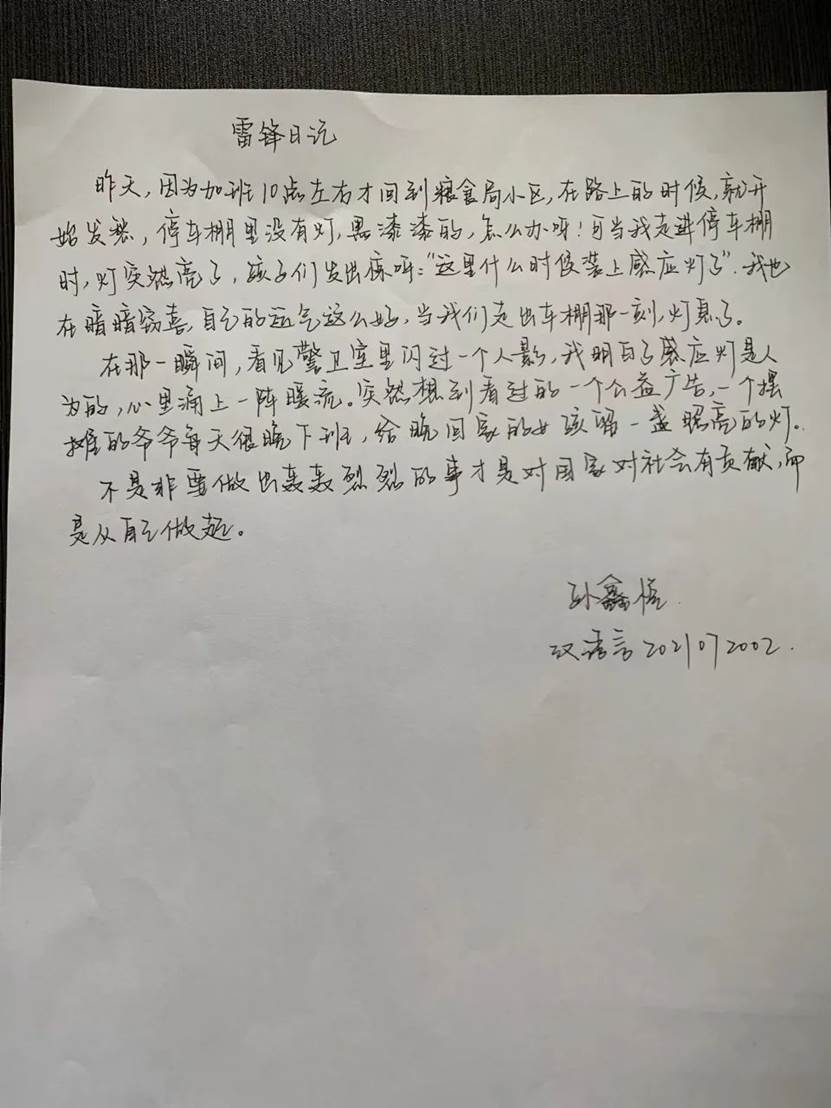 雷锋日记
昨天，因为加班10点左右才回到粮食局小区，在路上的时候，就开
始发愁，停车棚里没有灯，黑漆漆的，怎么办呀！可当我走进停车棚
时，灯突然亮了，孩子们发出惊呼："这里什么时候装上感应灯了"．我也
在暗暗窃喜，自己的运气这么好，当我们走出车棚那一刻，灯熄了。
在那一瞬间，看见警卫室里闪过一个人影，我明白了感应灯是人
为的，心里涌上一阵暖流。突然想到看过的一个公益广告，一个摆
摊的爷爷每天很晚下班，给晚回家的女孩留一盏照亮的灯。
不是非要做出轰轰烈烈的事才是对国家对社会有贡献，而
是从自己做起。
孙鑫
汉语言2021072002．